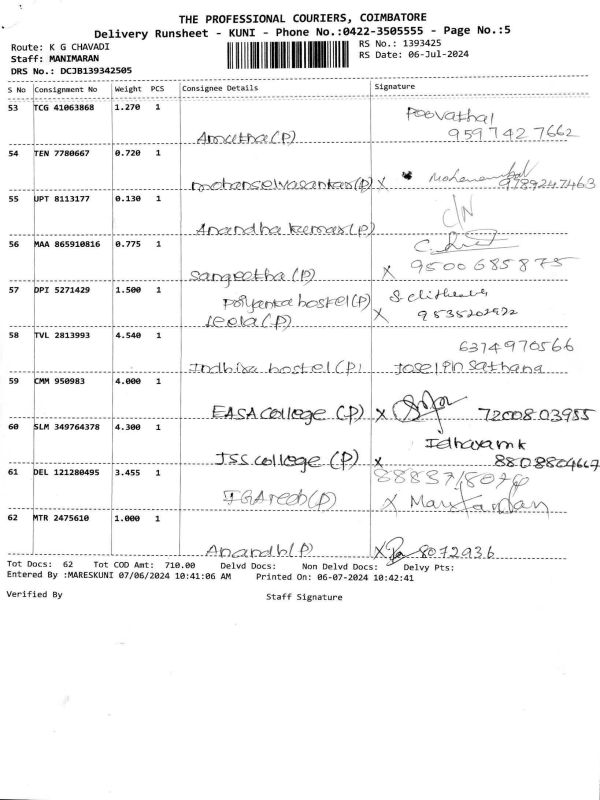 THE PROFESSIONAL COURIERS, COIMBATORE
Delivery Runsheet - KUNI - Phone No.:0422-3505555 - Page No.:5
Route: K G CHAVADI
RS No.: 1393425
Staff: MANIMARAN
RS Date: 06-Jul-2024
DRS No.: DCJB139342505
S No Consignment No Weight PCS Consignee Details Signature
53 TCG 41063868 1.270 1
Poovathal
9597427662
Amutha(P)
54 TEN 7780667 0.720 1
mohanselvasankar(P) X 9789247463
55 UPT 8113177 0.130 1
C/N
Anandha kumar(P)
56 MAA 865910816 0.775 1
Sangeetha(P) X 9500685875
57 DPI 5271429 1.500 1
Poiyanka hostel(P)
Leela(P) X 9535202922
58 TVL 2813993 4.540 1
6374970566
Indhira hostel(P) Joselpin sathana
59 CMM 950983 4.000 1
EASA College (P) X 7200803955
60 SLM 349764378 4.300 1
Idhayam k
JSS college (P) x 8808804667
61 DEL 121280495 3.455 1
(P) X
62 MTR 2475610 1.000 1
Anandh(P) X 8072936
Tot Docs: 62 Tot COD Amt: 710.00 Delvd Docs: Non Delvd Docs: Delvy Pts:
Entered By :MARESKUNI 07/06/2024 10:41:06 AM Printed On: 06-07-2024 10:42:41
Verified By Staff Signature